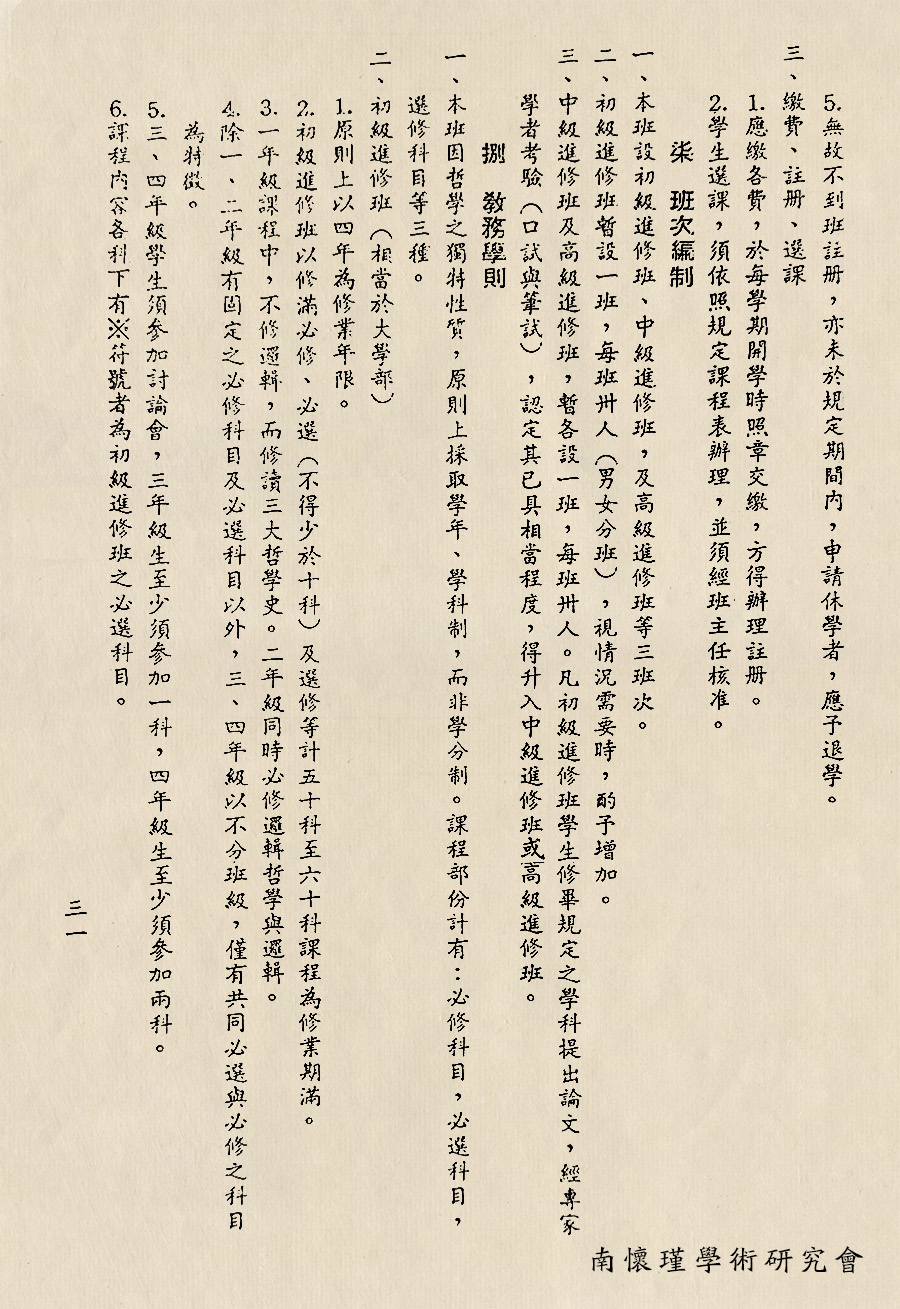 5.無故不到班註册，亦未於規定期間內，申請休學者，應予退學。
三、繳費、註册、選課
1.應繳各費，於每學期開學時照章交繳，方得辦理註册。
2.學生選課，須依照規定課程表辦理，並須經班主任核准。
柒　班次編制
一、本班設初級進修班、中級進修班，及高級進修班等三班次。
二、初級進修班暫設一班，每班卅人（男女分班），視情況需要時，酌予增加。
三、中級進修班及高級進修班，暫各設一班，每班卅人。凡初級進修班學生修畢規定之學科提出論文，經專家
學者考驗（口試與筆試），認定其已具相當程度，得升入中級進修班或高級進修班。
捌　教務學則
一、本班因哲學之獨特性質，原則上採取學年、學科制，而非學分制。課程部份計有：必修科目，必選科目，
選修科目等三種。
二、初級進修班（相當於大學部）
1.原則上以四年為修業年限。
2.初級進修班以修滿必修、必選（不得少於十科）及選修等計五十科至六十科課程為修業期滿。
3.一年級課程中，不修邏輯，而修讀三大哲學史。二年級同時必修邏輯哲學與邏輯。
4.除一、二年級有固定之必修科目及必選科目以外，三、四年級以不分班級，僅有共同必選與必修之科目
為特徵。
5.三、四年級學生須參加討論會，三年級生至少須參加一科，四年級生至少須參加兩科。
6.課程內容各科下有※符號者為初級進修班之必選科目。
三一
南懷瑾學術研究會